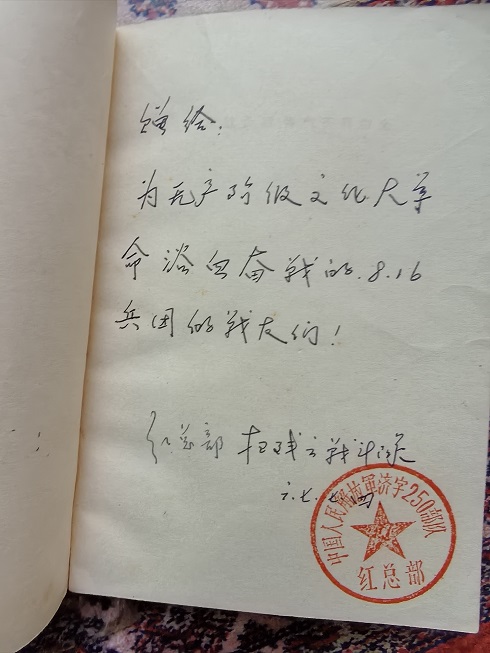 赠给:
为无产阶级文化大革
命浴血奋战的.8.16
兵团的战友们!
红总部 扫残云战斗队
六.七.
中国人民解放军济字250部队
红总部